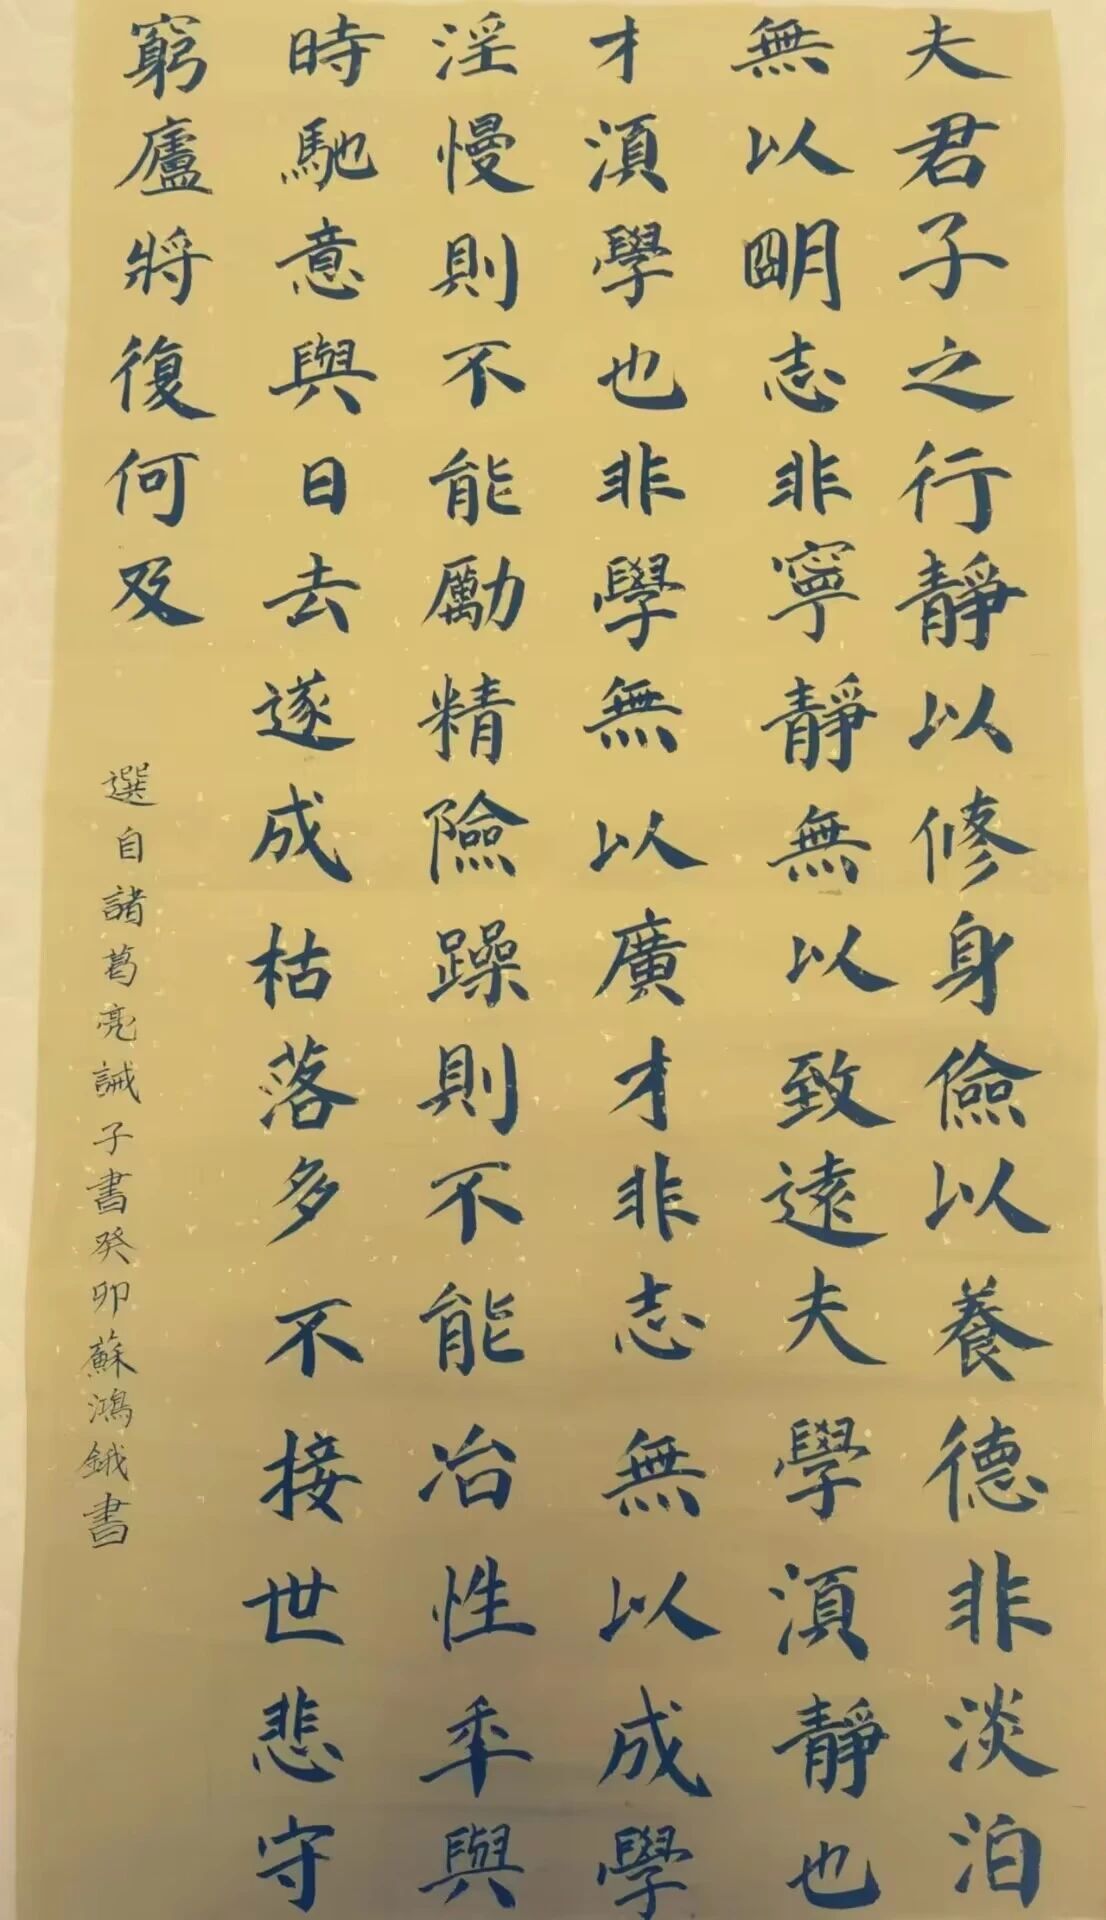 夫君子之行靜以修身儉以養德非淡泊
無以朙志非寧靜無以致遠夫學湏靜也
才湏學也非學無以廣才非志無以成學
淫慢則不能勵精險躁則不能冶性年與
時馳意與日去遂成枯落多不接世悲守
窮廬將復何及
選自諸葛亮誡子書癸卯蘇鴻鋨書